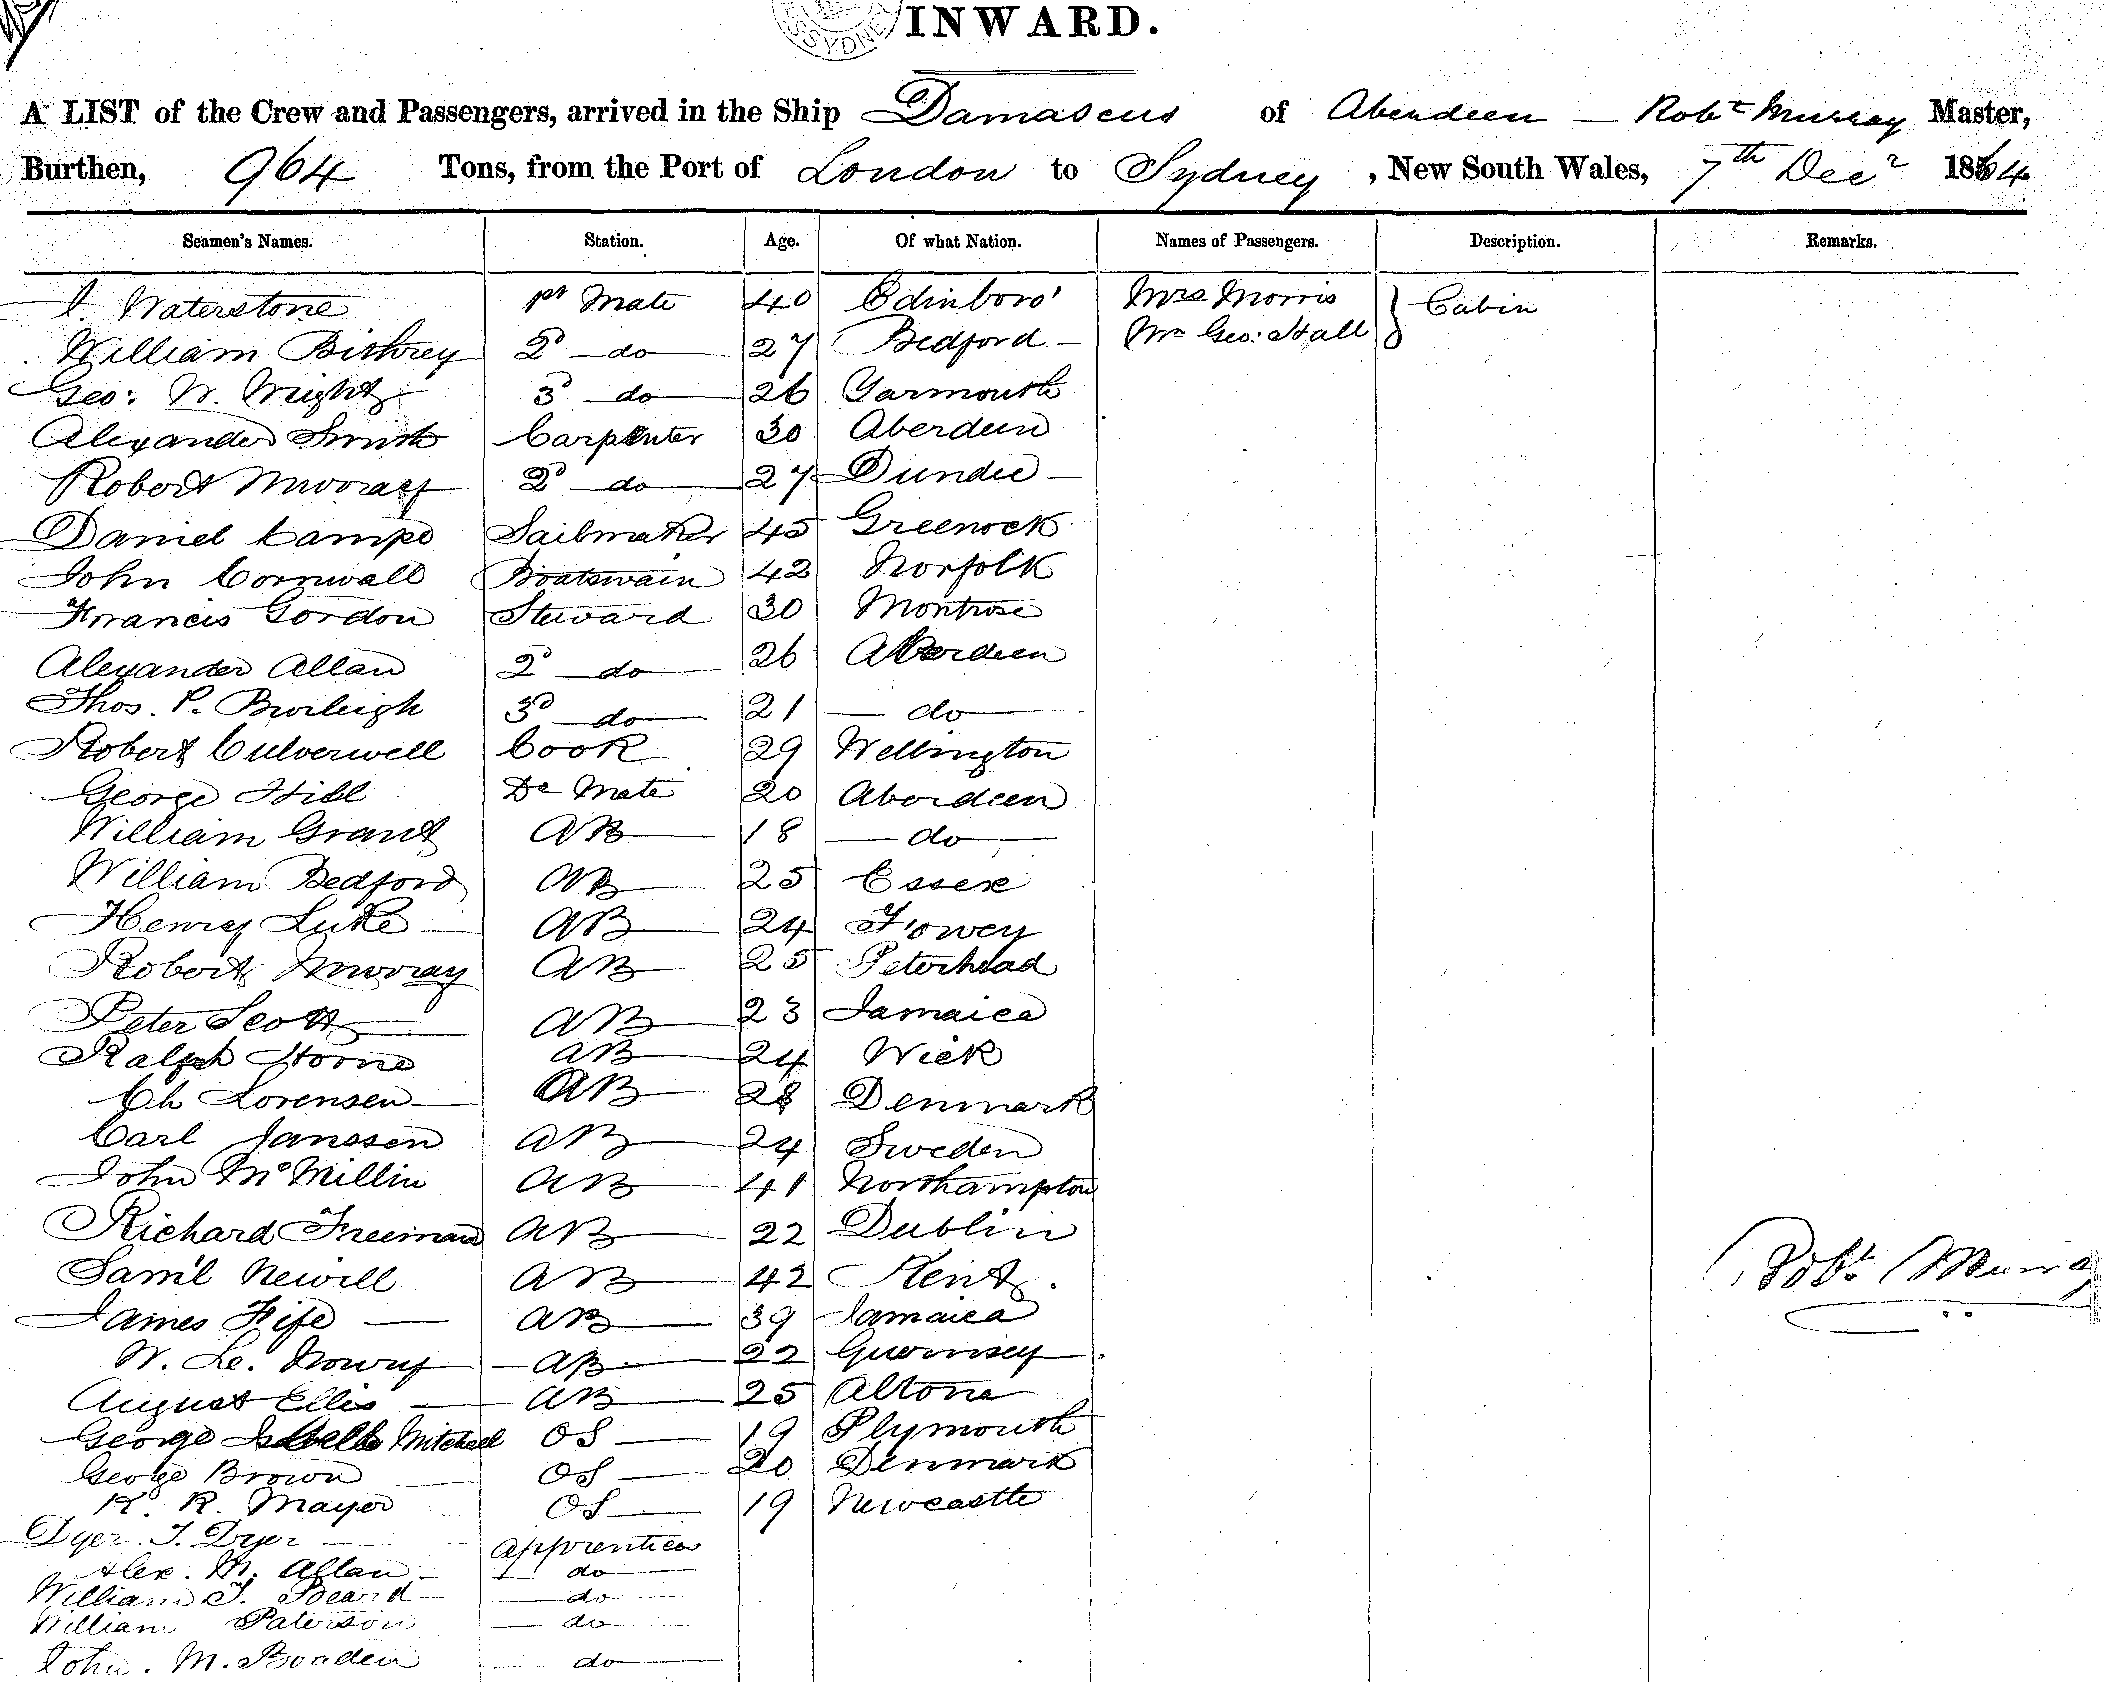 SYDNEY
INWARD.
A LIST of the Crew and Passengers, arrived in the Ship Damascus of Aberdeen — Robt Murray Master,
Burthen, 964 Tons, from the Port of London to Sydney, New South Wales, 7th Decr 1864
Seamen's Names. Station. Age. Of what Nation. Names of Passengers. Description. Remarks.
J. Waterstone 1st Mate 40 Edinboro' Mrs Morris } Cabin
William 2d do 27 Bedford Mr Geo: Hall
Geo: W. Wright 3d do 26 Yarmouth
Alexander Smith Carpenter 30 Aberdeen
Robert Murray 2d do 27 Dundee
Daniel Campe Sailmaker 45 Greenock
John Cornwall Boatswain 42 Norfolk
Francis Gordon Steward 30 Montrose
Alexander Allan 2d do 26 Aberdeen
Thos. P. Burleigh 3d do 21 do
Robert Culverwell Cook 29 Wellington
George Hill Do Mate 20 Aberdeen
William Grant AB 18 do
William Bedford AB 25 Essex
Henry Luke AB 24 Fowey
Robert Murray AB 25 Peterhead
Peter Scott AB 23 Jamaica
Ralph Horne AB 24 Wick
Ch Lorensen AB 28 Denmark
Carl Janssen AB 24 Sweden
John McMillin AB 41 Northampton
Richard Freeman AB 22 Dublin
Saml Newill AB 42 Kent. Robt Murray
James Fife AB 39 Jamaica
W. Le. Nowry AB 22 Guernsey
August Ellis AB 25 Altona
George Mitchell OS 19 Plymouth
George Brown OS 20 Denmark
K. R. Mayer OS 19 Newcastle
Dyer. T. Dyer Apprentices
Alex. M. Allan do
William T. Beard do
William Paterson do
John. M. Boaden do